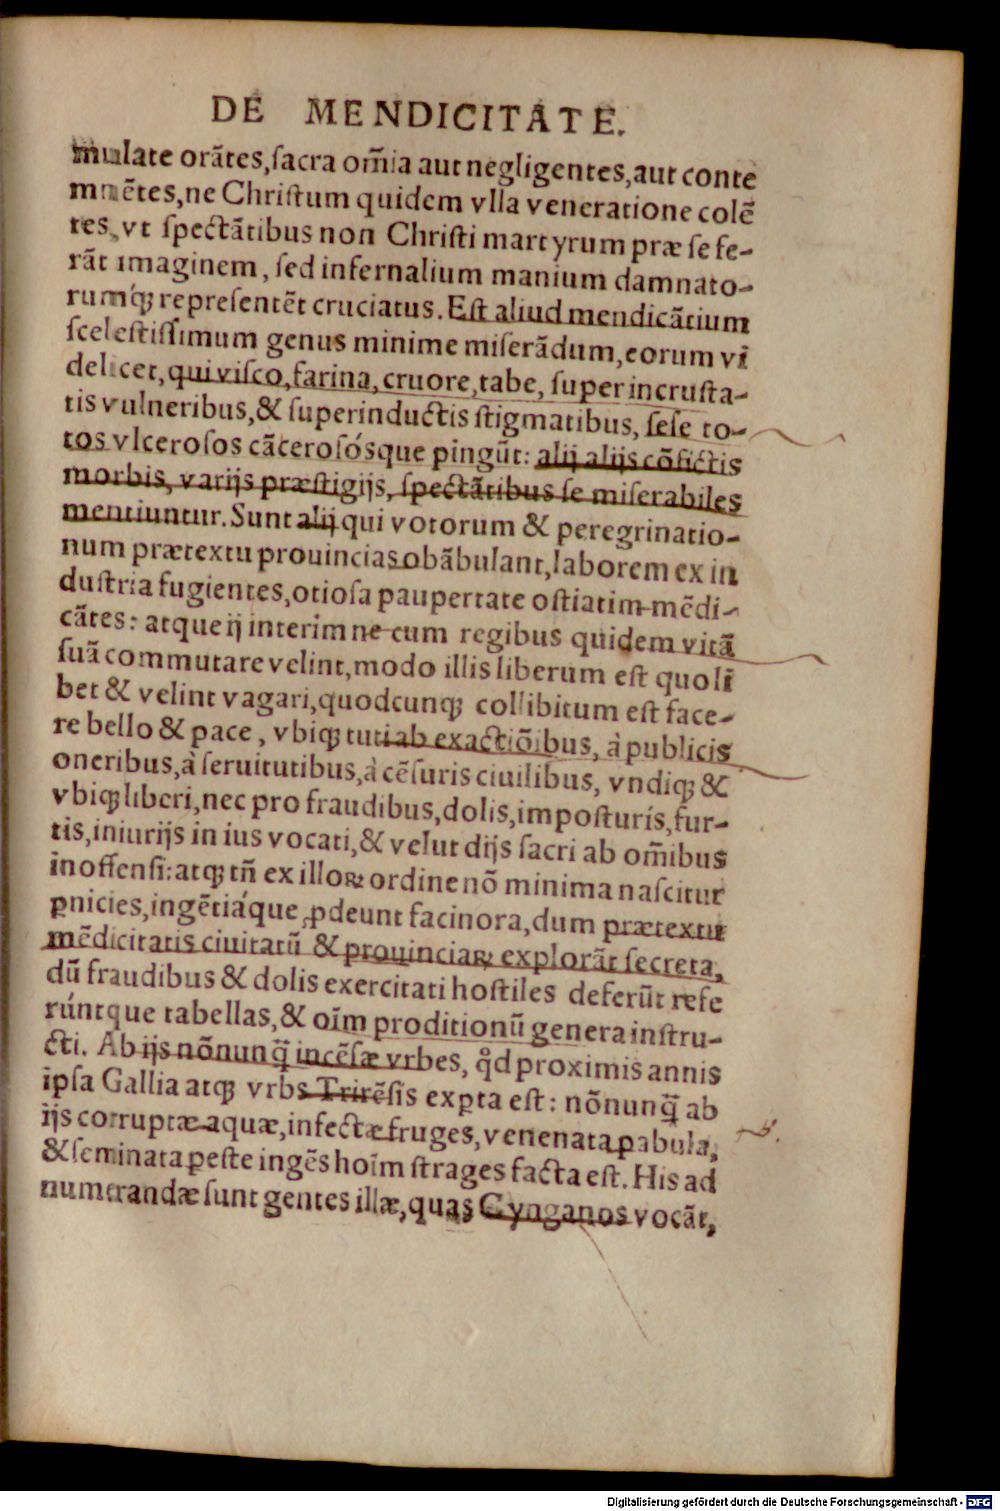 DE MENDICITATE.
mulate orātes,ſacra om̄ia aut negligentes,aut conte
mnētes,ne Chriſtum quidem vlla veneratione colē
tes, vt ſpectātibus non Chriſti martyrum præ ſe fe-
rāt imaginem, ſed infernalium manium damnato-
rumq́; repreſentēt cruciatus. Eſt aliud mendicātium
ſceleſtiſſimum genus minime miſerādum, eorum vi
delicet, qui viſco, farina, cruore, tabe, ſuper incruſta-
tis vulneribus,& ſuperinductis ſtigmatibus, ſeſe to-
tos vlceroſos cāceroſósque pingūt: alij alijs cōfictis
morbis, varijs præſtigijs, ſpectātibus ſe miſerabiles
mentiuntur. Sunt alij qui votorum & peregrinatio-
num prætextu prouincias obābulant, laborem ex in
duſtria fugientes, otioſa paupertate oſtiatim mēdi-
cātes: atque ij interim ne cum regibus quidem vitā
ſuā commutare velint, modo illis liberum eſt quoli
bet & velint vagari, quodcunq; collibitum eſt face-
re bello & pace, vbiq; tuti ab exactiōibus, à publicis
oneribus, à ſeruitutibus, à cēſuris ciuilibus, vndiq; &
vbiq; liberi, nec pro fraudibus, dolis, impoſturis, fur-
tis, iniurijs in ius vocati, & velut dijs ſacri ab om̄ibus
inoffenſi: atq; tn̄ ex illoꝝ ordine nō minima naſcitur
ꝑnicies, ingētiáque ꝓdeunt facinora, dum prætextu
mēdicitatis ciuitatū & prouinciaꝝ explorāt ſecreta,
dū fraudibus & dolis exercitati hoſtiles deferūt refe
rúntque tabellas, & oīm proditionū genera inſtru-
cti. Ab ijs nōnunq̄ incēſæ vrbes, qd̄ proximis annis
ipſa Gallia atq; vrbs Trirēſis exꝑta eſt: nōnunq̄ ab
ijs corruptæ aquæ, infectæ fruges, venenata pabula,
& ſeminata peſte ingēs hoīm ſtrages facta eſt. His ad
numerandæ ſunt gentes illæ, quas Gynganos vocāt,
Digitalisierung gefördert durch die Deutsche Forschungsgemeinschaft - DFG